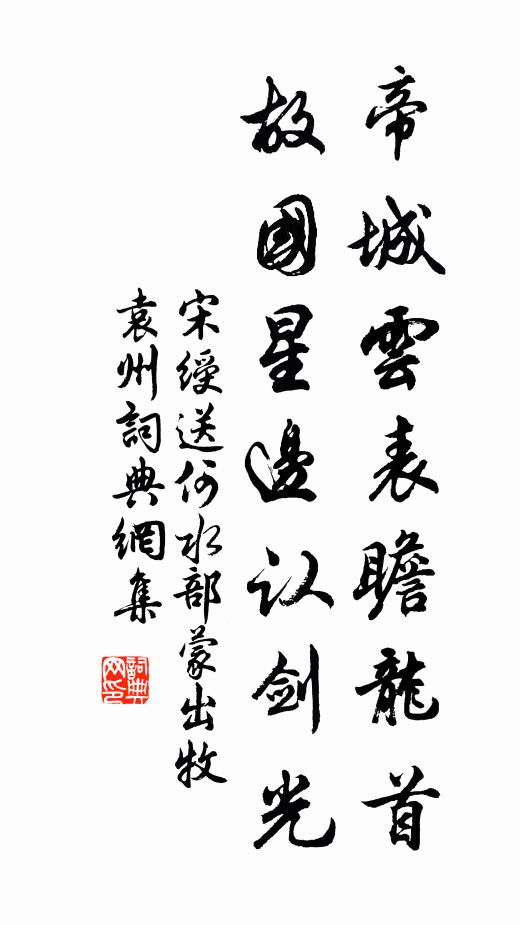 帝城雲表瞻龍首
故國星邊认劍光
宋綬送何水部蒙出牧
袁州詞典網集
詞典网印